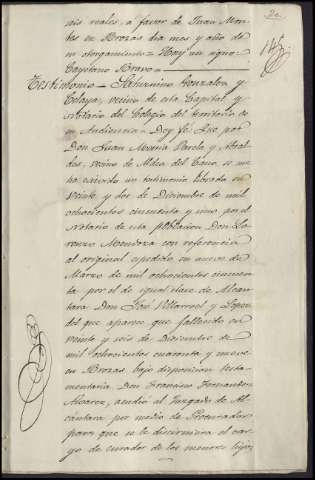 seis reales, a favor de Juan Mon-
tes en Brozas dia mes y año de
su otorgamiento = Hay un signo =
Cayetano Bravo =
Testimonio = Saturnino Gonzalez y
Celaya, vecino de esta Capital y
Notario del Colegio del territorio de
su Audiencia = Doy fé: Que, por
Don Juan Maria Varela y
vecino de Aldea del Cano, se me
ha exivido un testimonio librado en
veinte y dos de Diciembre de mil
ochocientos cincuenta y uno, por el
Notario de esta poblacion Don Lo-
renzo Mendoza con referencia
al original espedido en nueve de
Marzo de mil ochocientos cincuen-
ta por el de igual clase de Alcan-
tara Don José Villarroel y Lopez
del que aparece que falleció en
veinte y seis de Diciembre de
mil ochocientos cuarenta y nueve
en Brozas bajo disposicion testa-
mentaria Don Francisco Fernandez
Alvarez, acudió al Juzgado de Al-
cántara por medio de Procurador
para que se le discerniera el car-
go de curador de los menores hijos